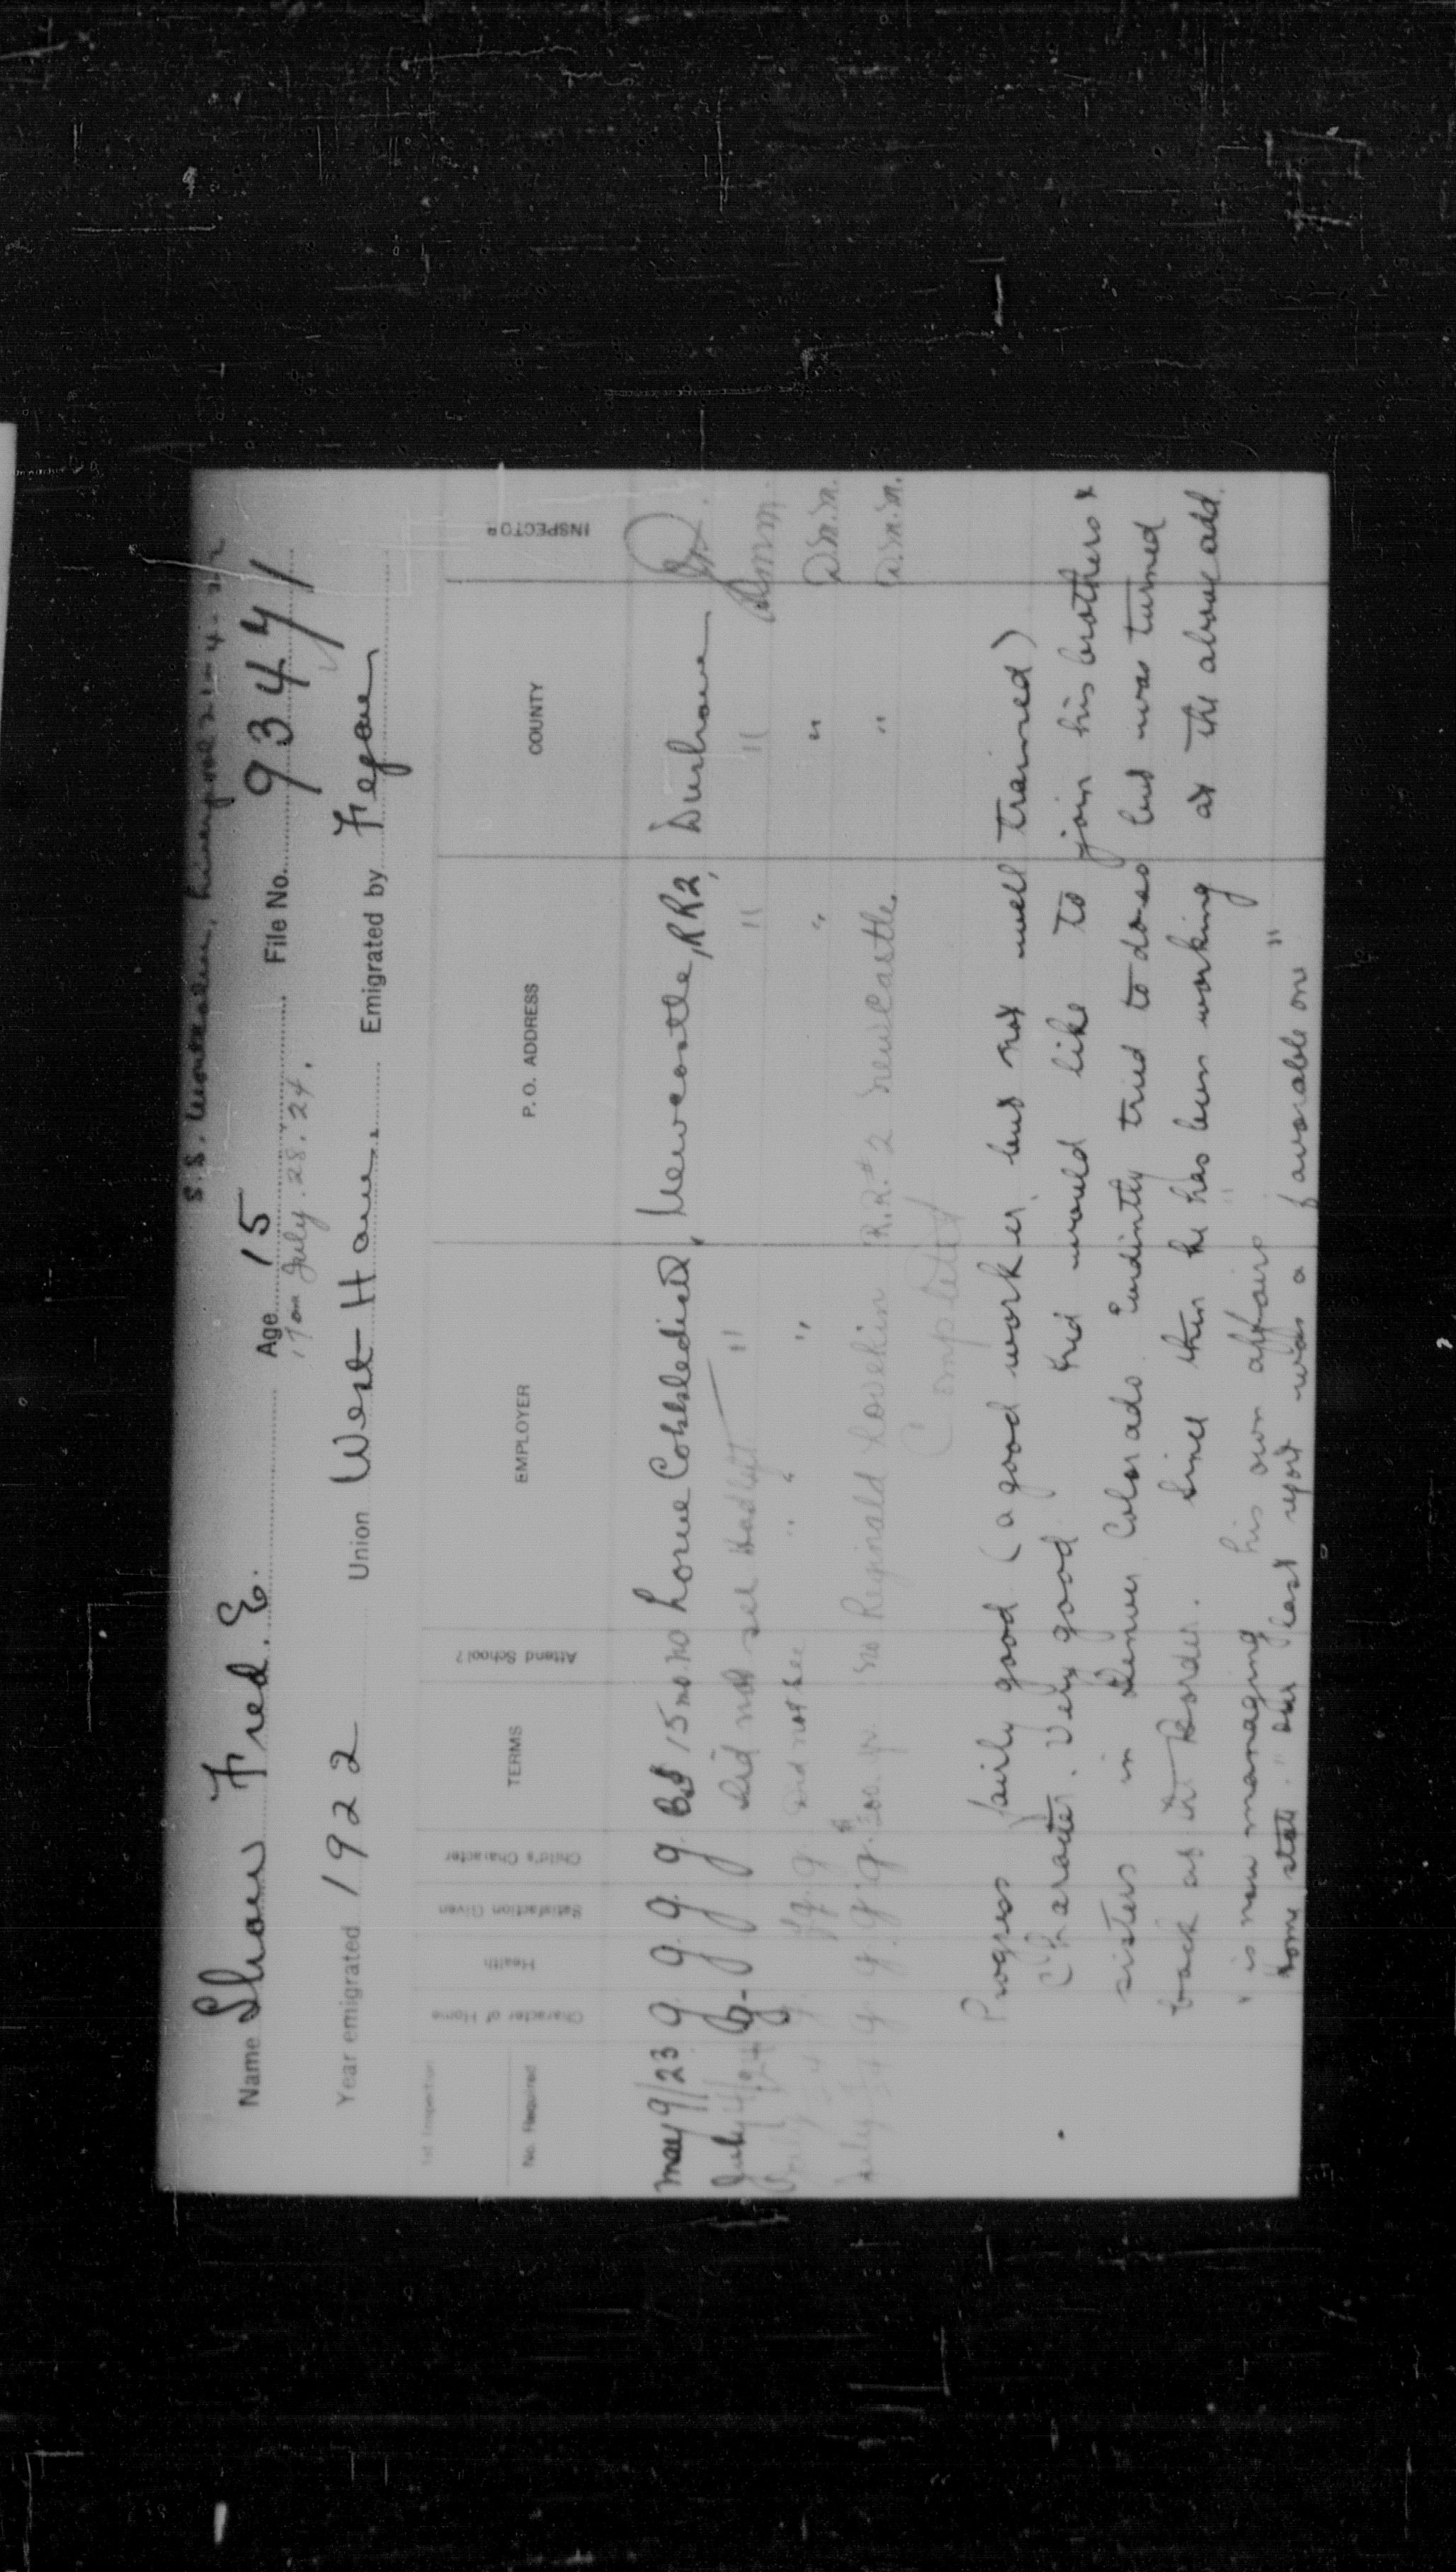 S.S. Montcalm, Liverpool 21-4-22
Name Shaw Fred. E. Age 15 File No. 93441
17 on July. 28. 24.
Year emigrated 1922 Union West Ham. Emigrated by Fegan
1st Inspection
No. Required Character of Home Health Satisfaction Given Child's Character TERMS Attend School? EMPLOYER P.O. ADDRESS COUNTY INSPECTOR
May 9/23 g. g. g. g. 15 mo. no Lorne Cobbledick, Newcastle, RR2, Durham
July g. g. g. Did not see had left " " "
g. g. Did not see " " " " D.M.M.
July g. g. g. g. $200. yr. no Reginald Lovekin R.R.#2 Newcastle. " D.M.M.
Completed
Progress fairly good (a good worker, but not well trained)
Character. Very good. Fred would like to join his brothers &
sisters in Denver Colorado. Evidintly tried to do so but was turned
back as it Border. Since then he has been working at the above add.
" is now managing his own affairs "
home state." Our last report was a favorable one"